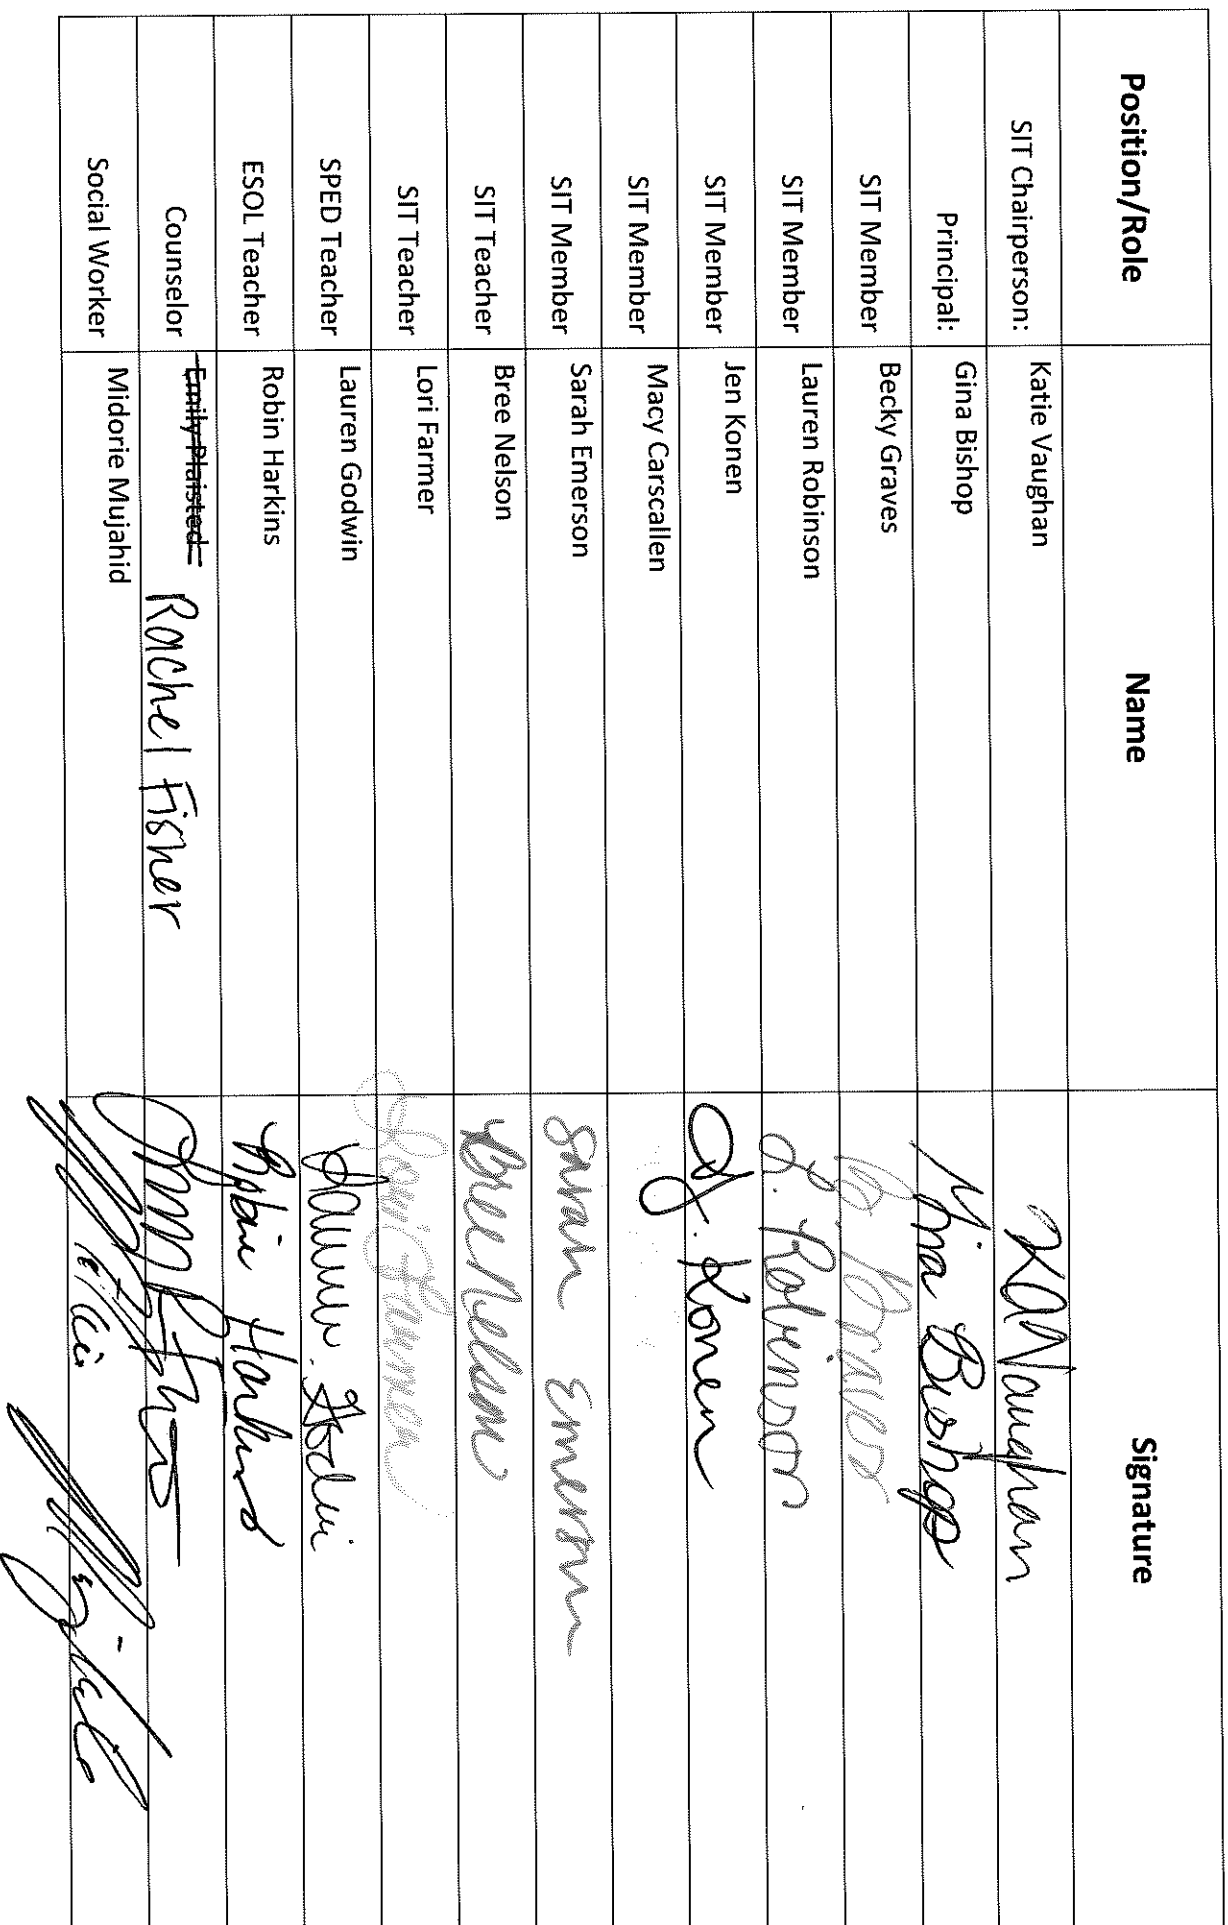 Position/Role Name Signature
SIT Chairperson: Katie Vaughan KAVaughan
Principal: Gina Bishop Gina Bishop
SIT Member Becky Graves B Graves
SIT Member Lauren Robinson L. Robinson
SIT Member Jen Konen J. Konen
SIT Member Macy Carscallen
SIT Member Sarah Emerson Sarah Emerson
SIT Teacher Bree Nelson Bree Nelson
SIT Teacher Lori Farmer Lori Farmer
SPED Teacher Lauren Godwin Lauren Godwin
ESOL Teacher Robin Harkins Robin Harkins
Counselor Emily Plaisted Rachel Fisher
Social Worker Midorie Mujahid